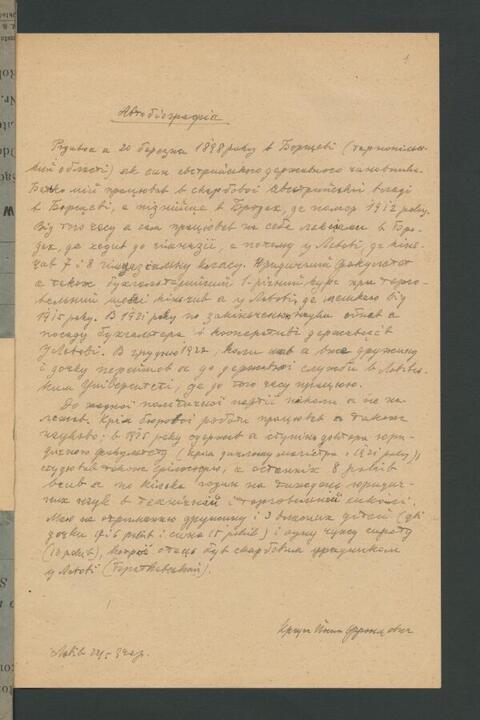 1
Автобіографія
Родився я 20 березня 1898 року в Борщеві (тарнопіль-
ській області) як син австрійського державного чиновника.
Батько мій працював в скарбовій австрійській владі
в Борщеві, а пізнійше в Бродах, де помер 1912 року.
Від того часу я сам працював на себе лекціями в Бро-
дах, де ходив до гімназії, а потому у Львові, де кін-
чав 7 і 8 гімназіяльну клясу. Юридичний факультет
а також бухгальтерійний річний курс при торго-
вельній школі кінчив я у Львові, де мешкаю від
1915 року. В 1921 році по закінченню науки обняв я
посаду бухгальтера в кооперативі державців
у Львові. В грудню 1922, коли мав я вже дружину
і дочку перейшов я до державної служби в Львівсь-
кім Університеті, де до того часу працюю.
До жадної політичної партії ніколи я не на-
лежав. Крім бюрової роботи працював я також
науково; в 1925 року одержав я ступінь доктора юри-
дичного факультету (крім диплому магістра з 1921 року),
студіював також філософію, а останніх 8 років
вчив я по кілька годин на тиждень юридич-
них наук в технічній і торговельній школі.
Маю на отриманню дружину і 3 власних дітей (дві
дочки 17 і 6 років і сина 15 років) і одну чужу сироту
(10 років), котрої отець був скарбовим урядником
у Львові
Львів